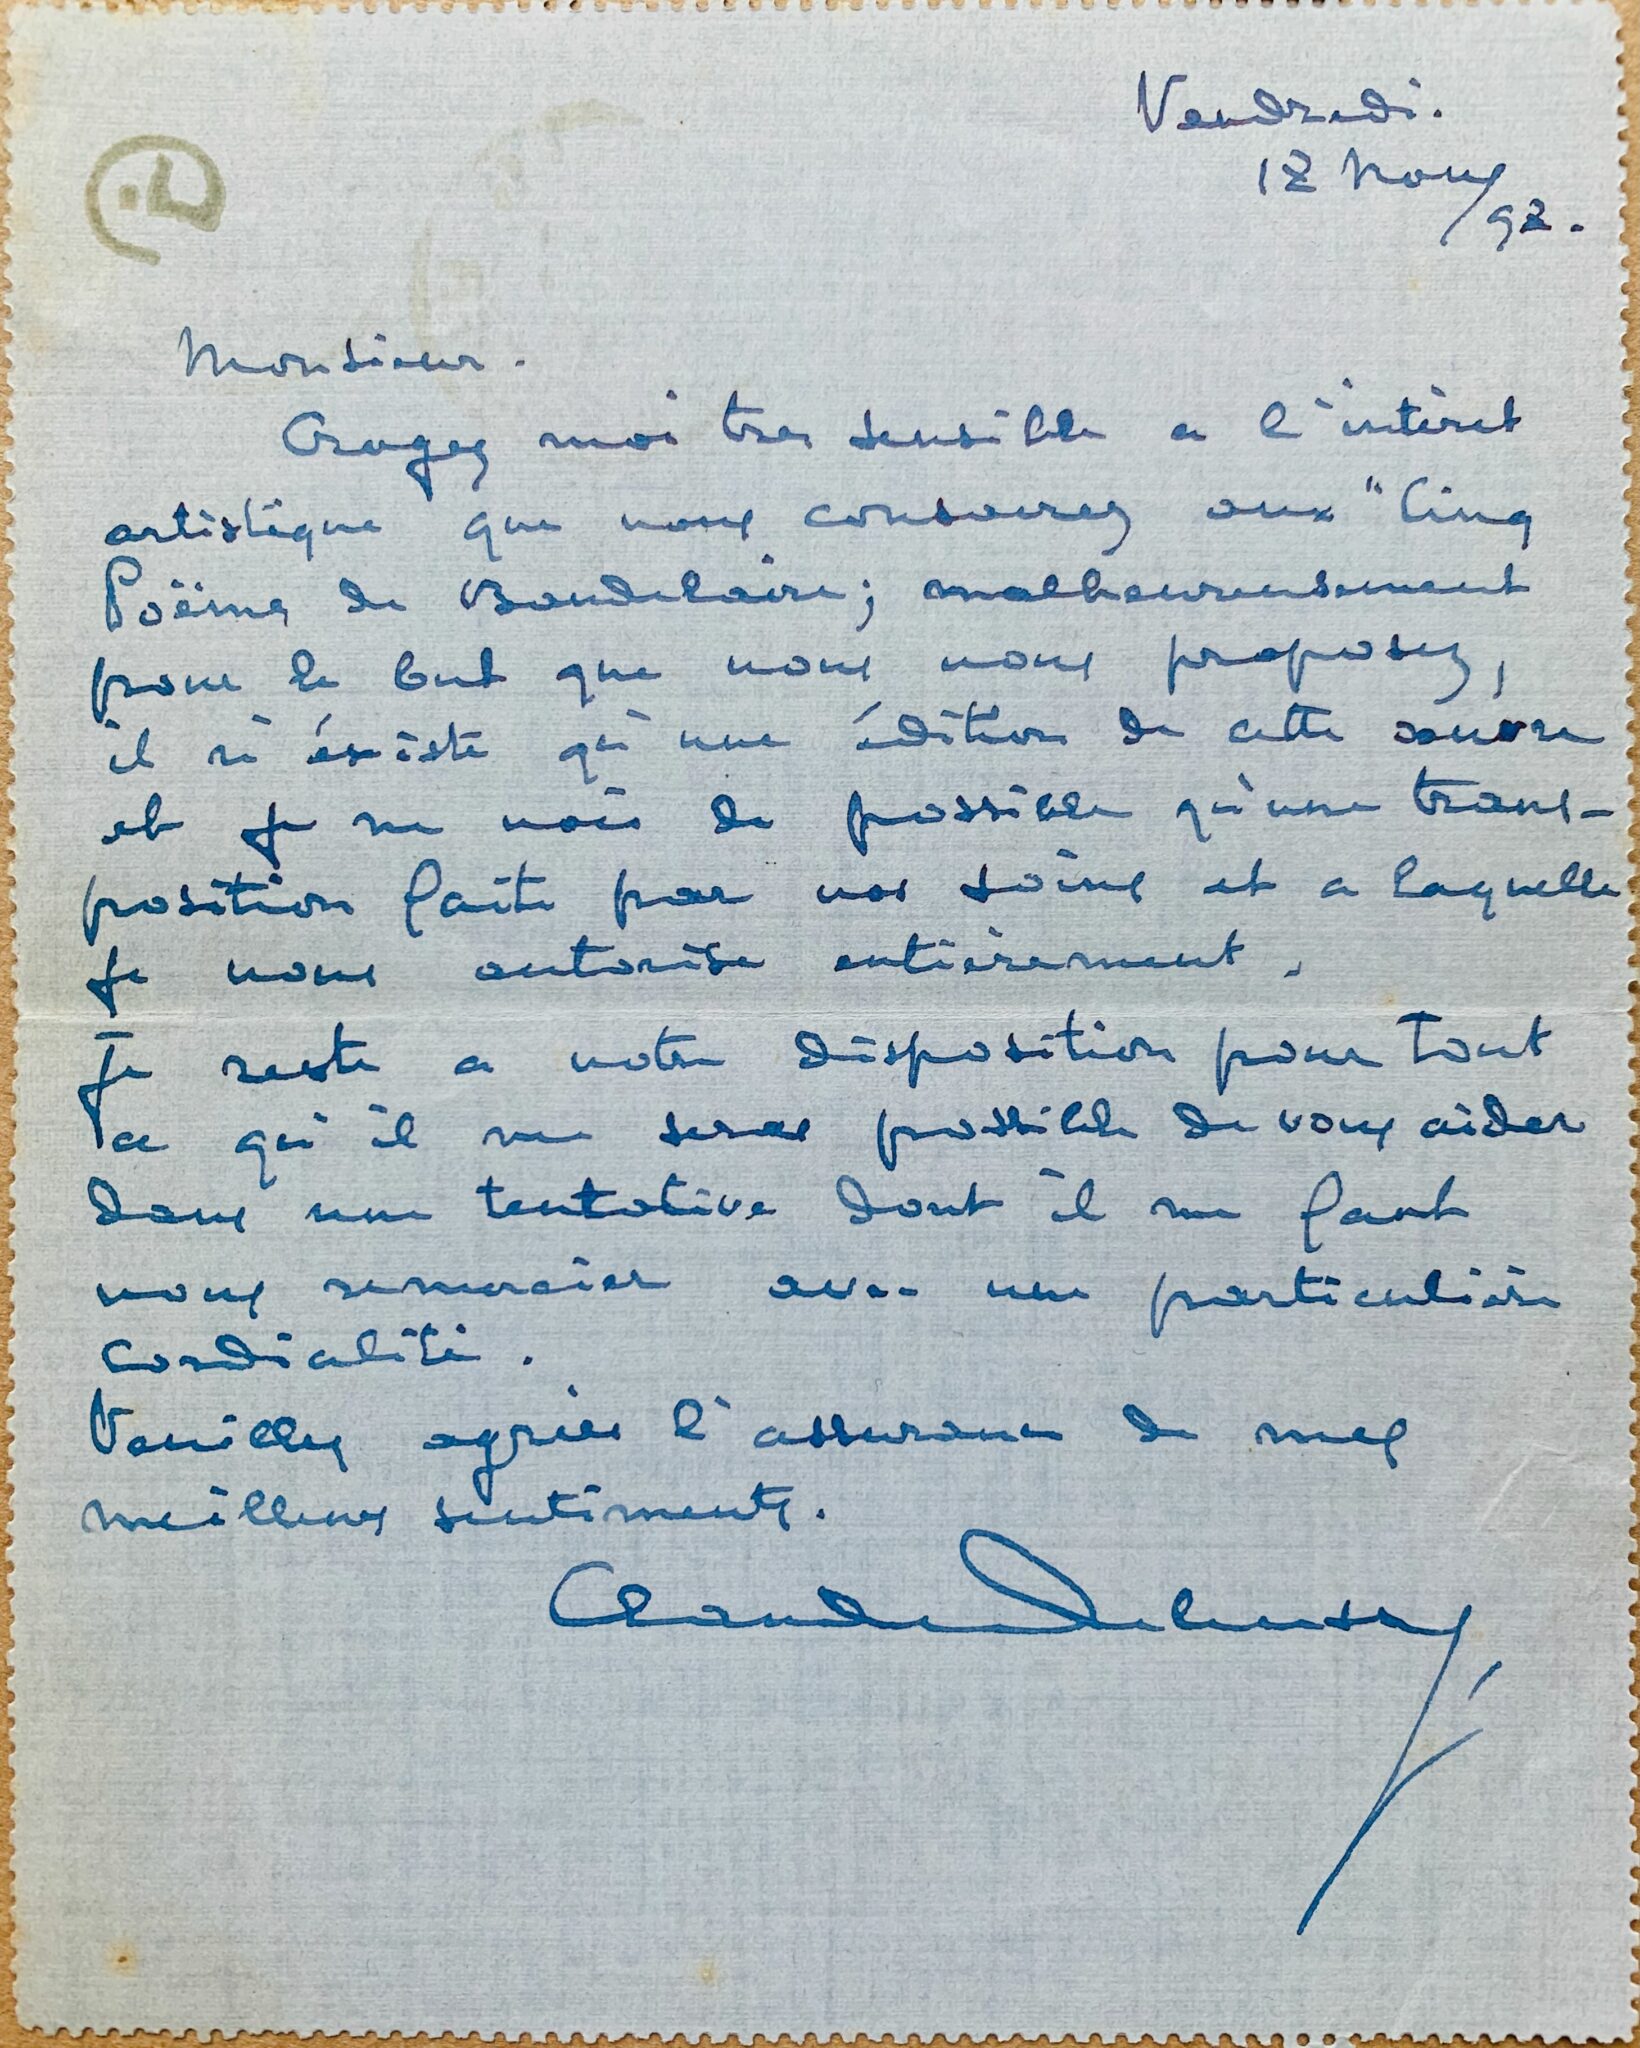 Vendredi.
12 Nov
/92.
Monsieur.
Croyez moi tres sensible a l'intéret
artistique que vous consacrez aux "Cinq
Poëmes de Baudelaire; malheureusement
pour le but que vous vous proposez,
il n'éxiste qu'une édition de cette œuvre
et je ne vois de possible qu'une trans-
position faite par vos soins et a laquelle
je vous autorise entièrement.
Je reste a votre disposition pour tout
ce qu'il me sera possible de vous aider
dans une tentative dont il me faut
vous remercier avec une particulière
cordialité.
Veuillez agréer l'assurance de mes
meilleurs sentiments.
Claude Debussy